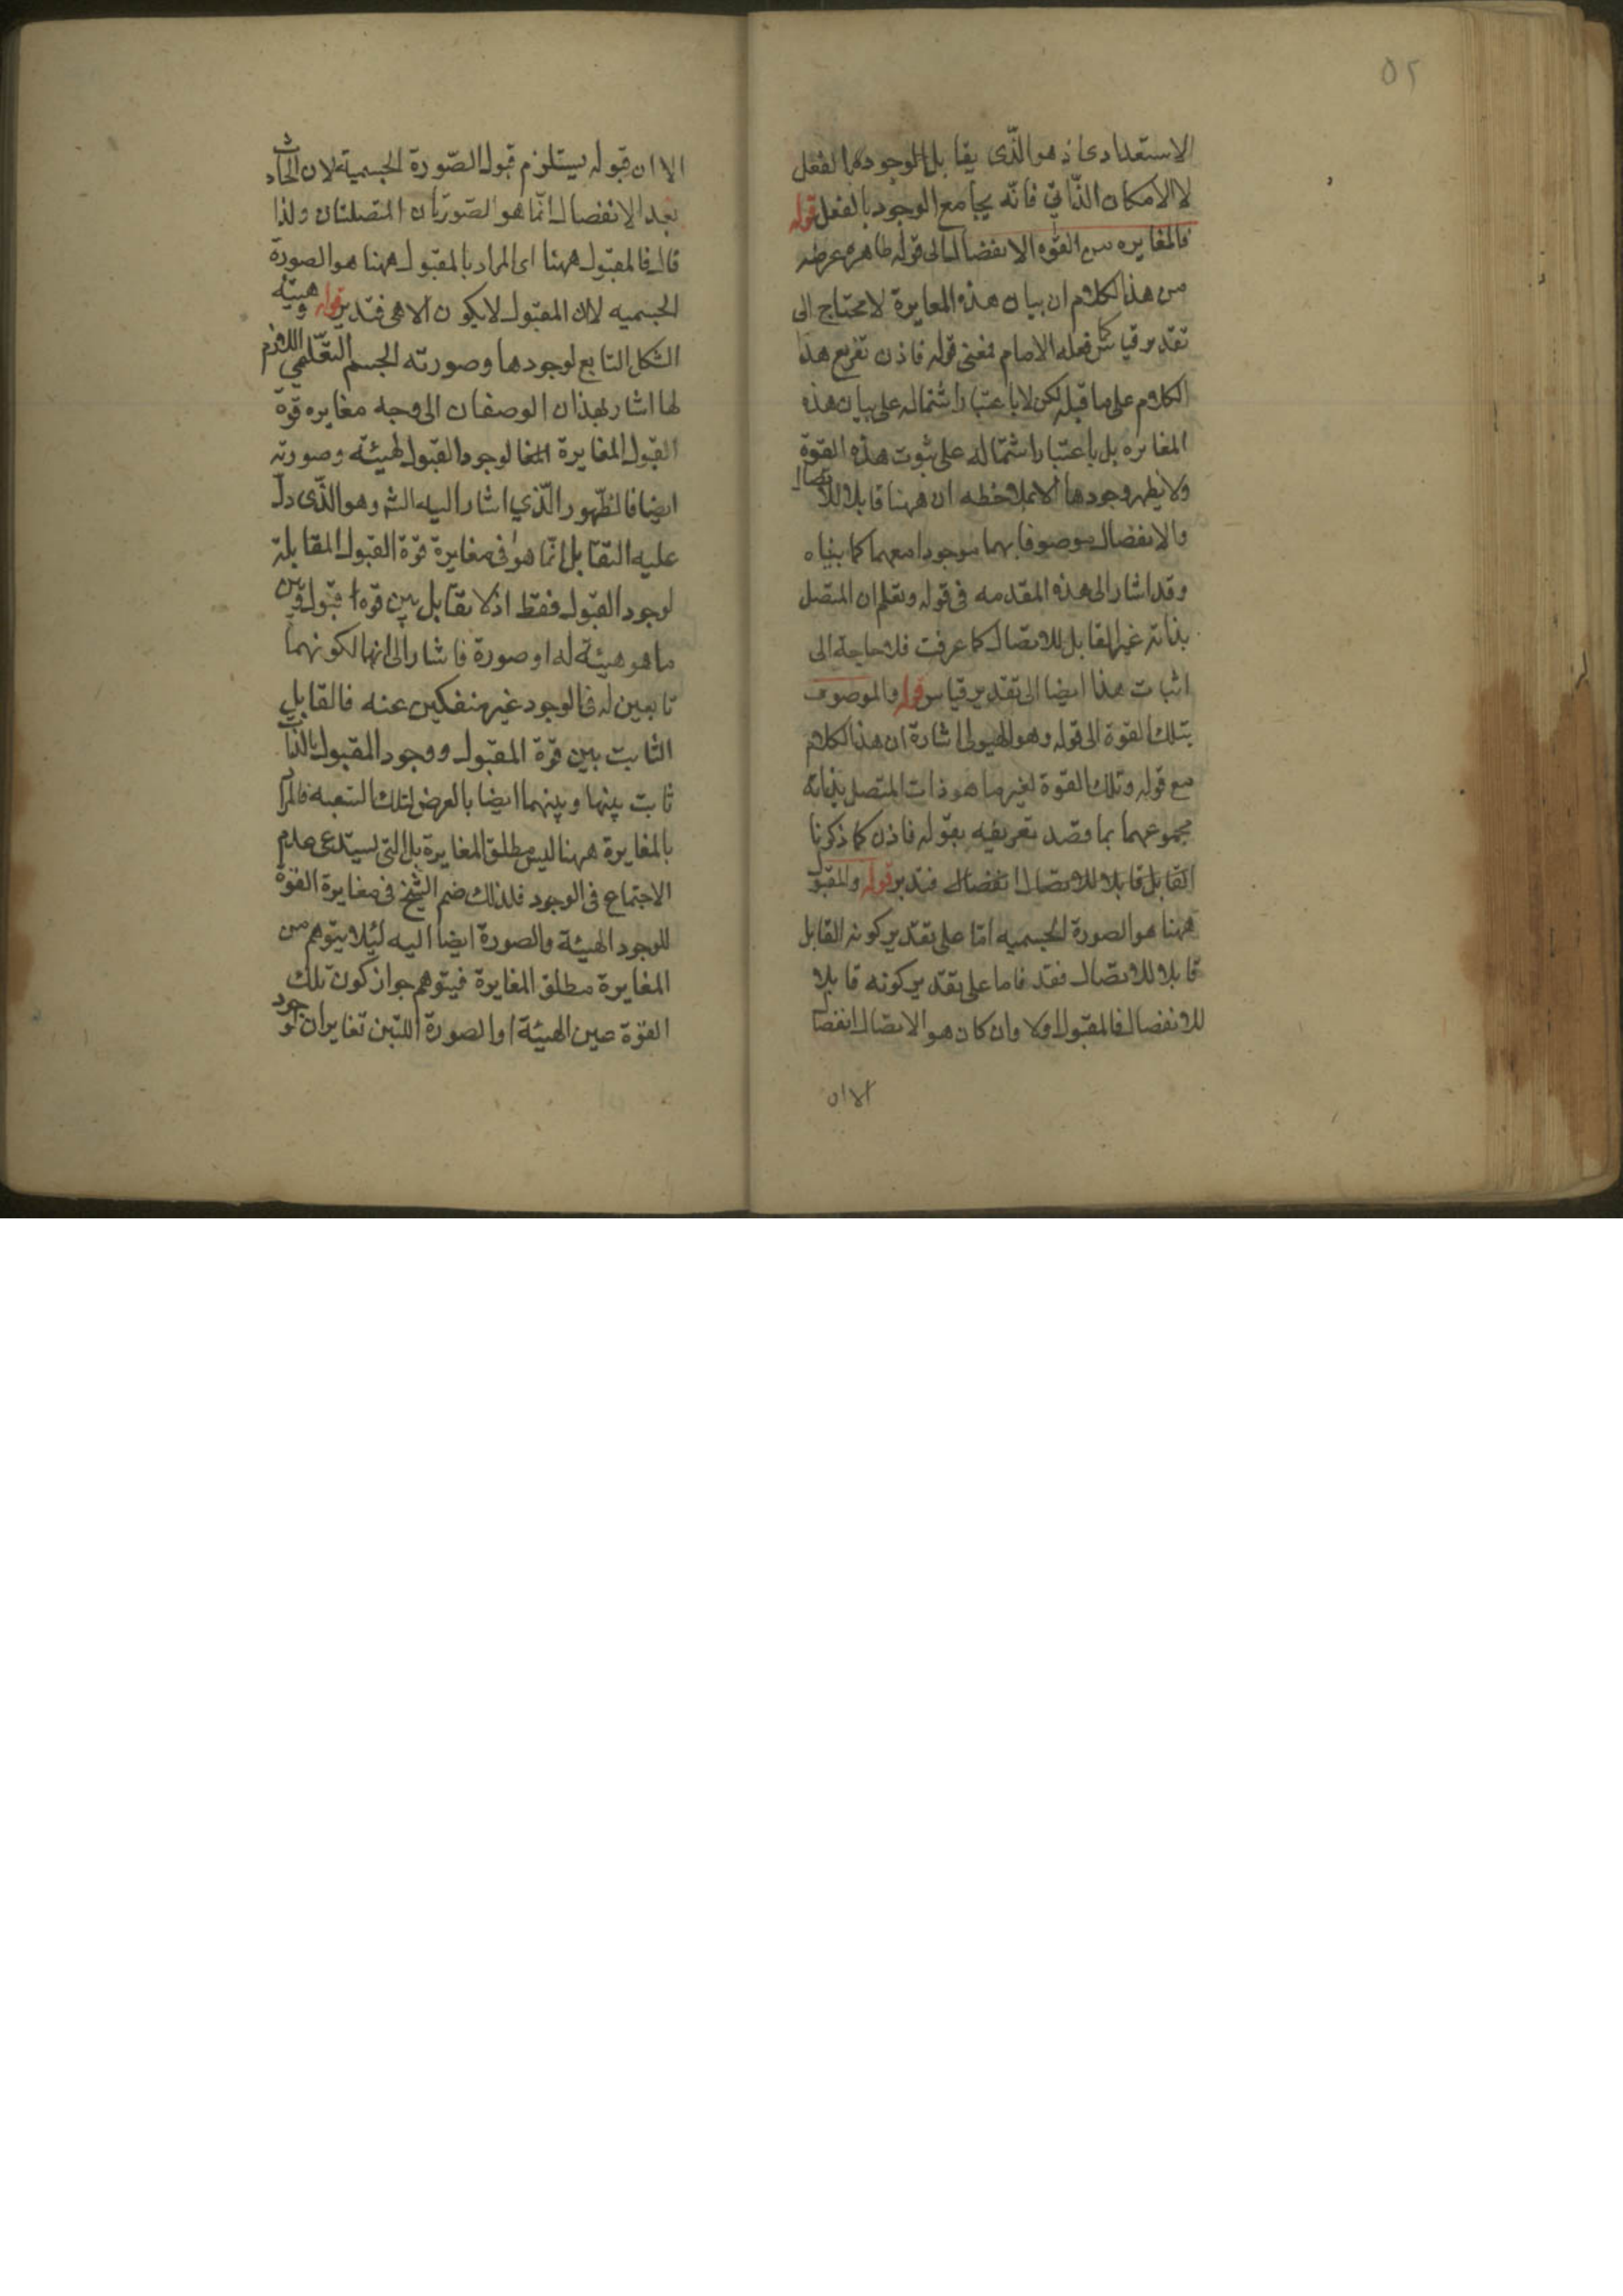 ٥٢
الاستعدادى اذ هو الذّى يقابل الوجود بالفعل
لا الامكان الذّاتي فانّه يجامع الوجود بالفعل قوله
فالمغايره بين القوّه الانفصال الى قوله ظاهره غرضه
من هذا الكلام ان بيان هذه المغايرة لا يحتاج الى
تقدير قياس كما فعله الامام فمعنى قوله فاذن تفريع هذا
الكلام على ما قبله لكن لا باعتبار اشتماله على بيان هذه
المغايره بل باعتبار اشتماله على ثبوت هذه القوّة
ولا يظهر وجودها الا بملاحظه ان ههنا قابلا للاتصال
والانفصال موصوفا بهما موجودا معهما كما بيناه
وقد اشار الى هذه المقدمه فى قوله وتعلم ان المتصل
بذاته غير القابل للاتصال كما عرفت فلا حاجة الى
اثبات هذا ايضا الى تقدير قياس قوله والموصوف
بتلك القوة الى قوله وهو الهيولى اشارة ان هذا الكلام
مع قوله وتلك القوة لغير ما هو ذات المتصل بذاته
مجموعهما بما قصد تعريفه بقوله فاذن كما ذكرنا
القابل قابلا للاتصال انفصال فتدبر قوله والمقبول
ههنا هو الصورة الجسميه امّا على تقدير كونه القابل
قابلا للاتصال فقد فاما على تقدير كونه قابلا
للانفصال فالمقبول اولا وان كان هو الاتصال انفصا
الا ان
الا ان قبوله يستلزم قبول الصّورة الجسمية لان الحادث
بعد الانفصال انّما هو الصّورتان المتصلتان ولذا
قال فالمقبول ههنا اى المراد بالمقبول ههنا هو الصورة
الجسميه لان المقبول لا يكون الا هى فتدبر قوله وهيئة
الشكل التابع لوجودها وصورته الجسم التعّلمي اللازم
لها اشار بهذان الوصفان الى وجه مغايره قوّة
القبول المغايرة لوجود القبول لهيئه وصورته
ايضا فالظّهور الّذي اشار اليه الشم وهو الذّى دل
عليه التقابل انّما هو فى مغايرة قوّة القبول المقابلة
لوجود القبول فقط اذ لا تقابل بين قوة قبول وبين
ما هو هيئة له او صورة فاشار الى انها لكونهما
تابعين له فى الوجود غير منفكين عنه فالقابل
الثابت بين قوّة المقبول ووجود المقبول بالذات
ثابت بينها وبينهما ايضا بالعرض لتلك التبعيه فالمراد
بالمغايرة ههنا ليس مطلق المغايرة بل التى يستدعى عدم
الاجتماع فى الوجود فلذلك ضم الشّيخ فى مغايرة القوّة
للوجود الهيئة والصورة ايضا اليه ليلا يتوهم من
المغايرة مطلق المغايرة فيتوهم جواز كون تلك
القوّة عين الهيئة او الصورة اللتين تغايران لوجود